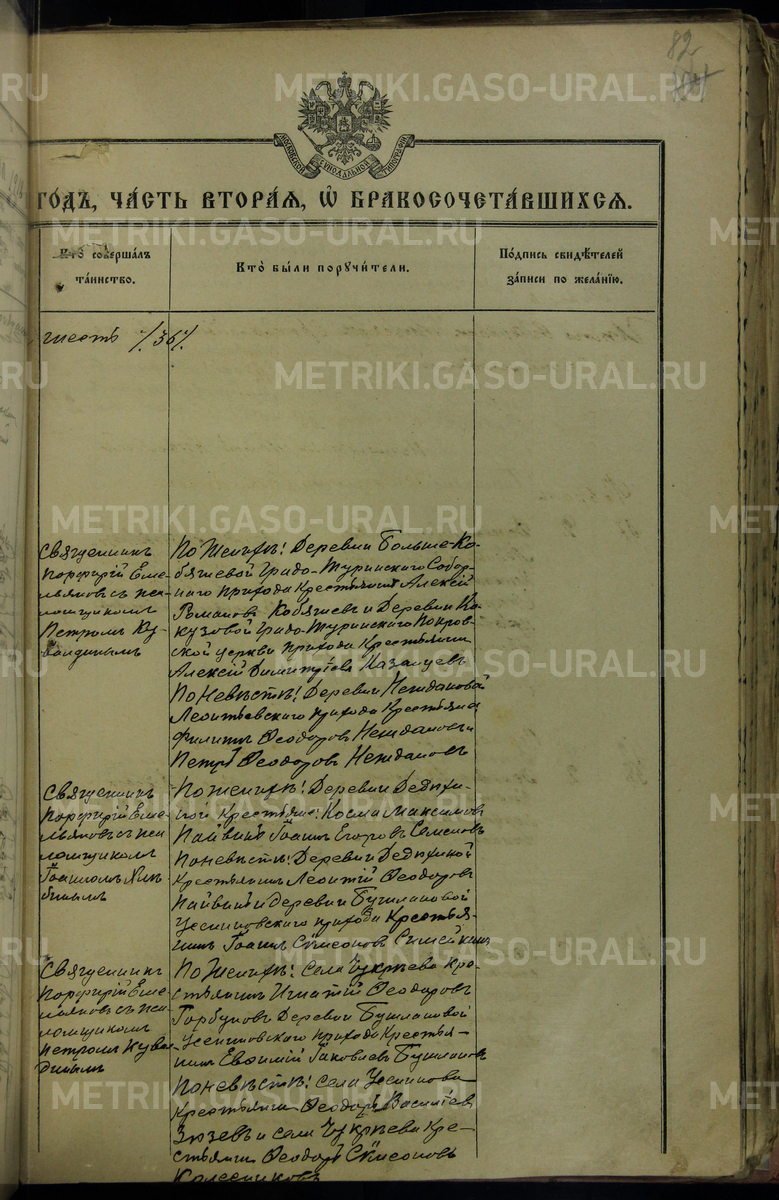 82
МОСКОВСКОЙ СѴНОДАЛЬНОЙ ТИПОГРАФІИ
ГО́ДЪ, ЧА́СТЬ ВТОРА́Я, Ѡ҆ БРАКОСОЧЕТА́ВШИХСЯ.
Кто̀ соверша́лъ
та́инство.
Кто̀ бы́ли поручи́тели.
По́дпись свидѣ́телей
за́писи по жела́нію.
шесть /36/.
Священникъ
Порфирій Еме-
льяновъ съ пса-
ломщикомъ
Петромъ Ку-
вандинымъ
По Женихѣ: Деревни Больше-Ко-
бяшевой Градо-Туринскаго Собор-
наго прихода Крестьянинъ Алексій
Романовъ Кобяшевъ и Деревни
Градо-Туринскаго Покров-
ской церкви прихода Крестьянинъ
Алексій Димитріевъ Казанцевъ
По Невѣстѣ: Деревни Неждановой
Леонтьевскаго прихода Крестьяне
Филиппъ Ѳеодоровъ Неждановъ и
Петръ Ѳеодоровъ Неждановъ
Священникъ
Порфирій Еме-
льяновъ съ пса-
ломщикомъ
Іоанномъ
По женихѣ: Деревни Дедюхи-
ной Крестьяне: Косма Максимовъ
Пайвинъ Іоаннъ Егоровъ Самсоновъ
По невѣстѣ: Деревни Дедюхиной
Крестьянинъ Леонтій Ѳеодоровъ
Пайвинъ и Деревни Бушлановой
Усениновскаго прихода Крестья-
нинъ Іоаннъ Симеоновъ
Священникъ
Порфирій Еме-
льяновъ съ пса-
ломщикомъ
Петромъ Куван-
динымъ
По Женихѣ: села Чукреева Кре-
стьянинъ Игнатій Ѳеодоровъ
Горбуновъ Деревни Бушлановой
Усениновскаго прихода Крестья-
нинъ Евѳимій Іаковлевъ Бушлановъ
По невѣстѣ: села Усенинова
Крестьянинъ Ѳеодоръ Василіевъ
Зюзевъ и села Чукреева Кре-
стьянинъ Ѳеодоръ Симеоновъ
Колесниковъ
METRIKI.GASO-URAL.RU